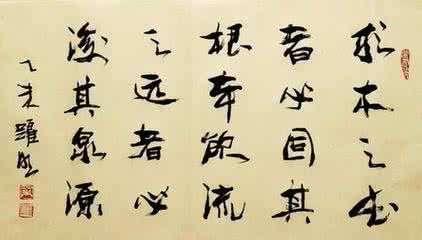 求木之長
者必固其
根本欲流
之远者必
浚其泉源
乙未羅